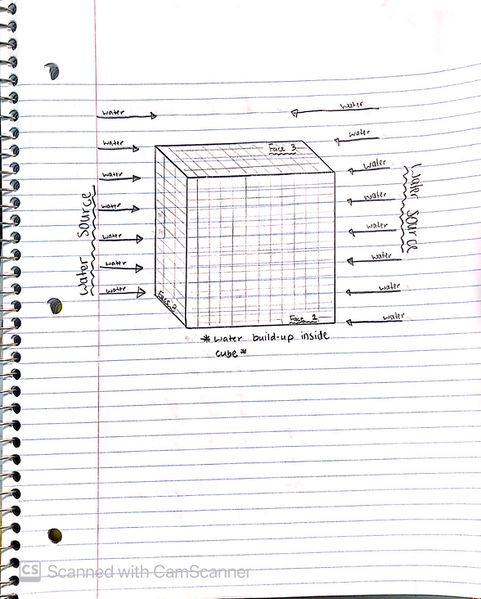 water
water
water
water
water
water
water
Water Source
water
water
water
water
water
water
water
water
Water Source
Face 3
Face 2
Face 1
*water build-up inside
cube*
CS Scanned with CamScanner